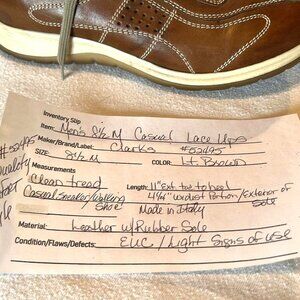 Inventory Slip
Item: Men's 8½ M Casual Lace Ups
Maker/Brand/Label: Clarks #52495
SIZE: 8½ M COLOR: Lt. Brown
Measurements
Clean tread Length: 11" Ext. toe to heel
Casual Sneaker/Walking Shoe 4¼" widest Portion/Exterior of Sole
Made in Italy
Material: Leather w/Rubber Sole
Condition/Flaws/Defects: EUC / Light Signs of use
#52495